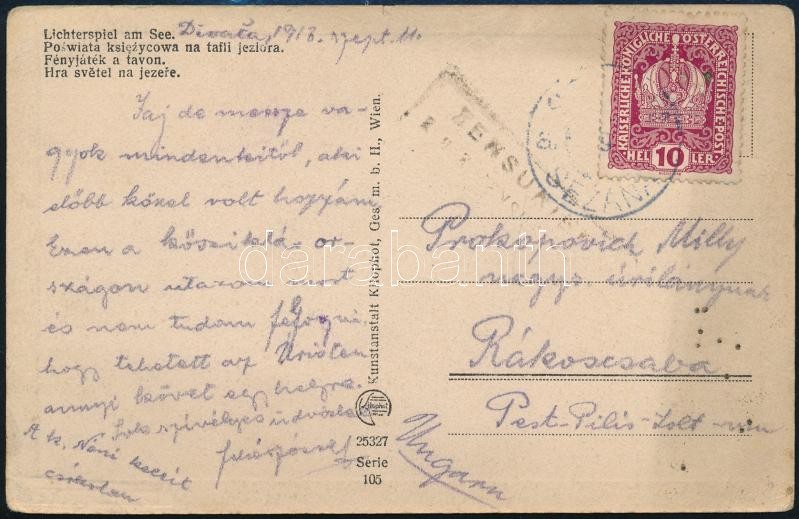 Lichterspiel am See.
Poświata księżycowa na tafli jeziora.
Fényjáték a tavon.
Hra světel na jezeře.
Divača, 1918. szept. 11.
Jaj de messze va-
gyok mindenkitől, aki
előbb közel volt hozzám
Ezen a kőszikla-or-
szágon utazom most
és nem tudom felfogni
hogy tehetett az Úristen
annyi követ egy helyre.
Sok szívélyes üdvözlet
A k. Néni kezeit
csókolom
Kunstanstalt Kilophot, Ges. m. b. H., Wien.
Kilophot
25327
Serie
105
KAISERLICHE KÖNIGLICHE ÖSTERREICHISCHE POST
HEL 10 LER
SEZANA
ZENSU
Prokopovich Milly
nagys úrilánynak
Rákoscsaba
Pest-Pilis-Solt-
Ungarn
darabanth